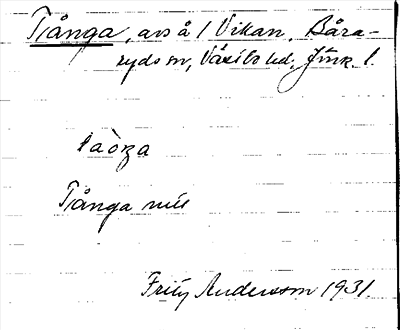 Tånga, avs å 1 Vikan, Båra-
ryds sn, Västbo hd. Jönk. l.
Tånga
Fritz Andersson 1931.